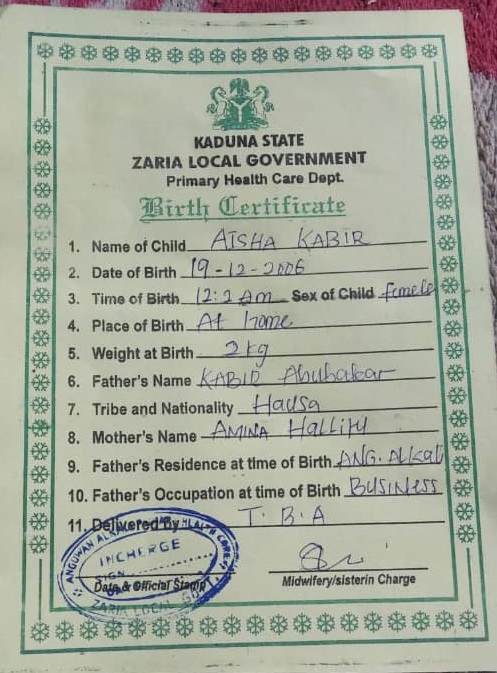 KADUNA STATE
ZARIA LOCAL GOVERNMENT
Primary Health Care Dept.
Birth Certificate
1. Name of Child AISHA KABIR
2. Date of Birth 19-12-2006
3. Time of Birth 12:2 am Sex of Child female
4. Place of Birth At home
5. Weight at Birth 2kg
6. Father's Name KABIR Abubakar
7. Tribe and Nationality Hausa
8. Mother's Name AMINA
9. Father's Residence at time of Birth ANG. ALKALI
10. Father's Occupation at time of Birth BUSINESS
11. Delivered by T.B.A
INCHERGE
SIGN
Date & Official Stamp
ZARIA LOCAL
Midwifery/sisterin Charge